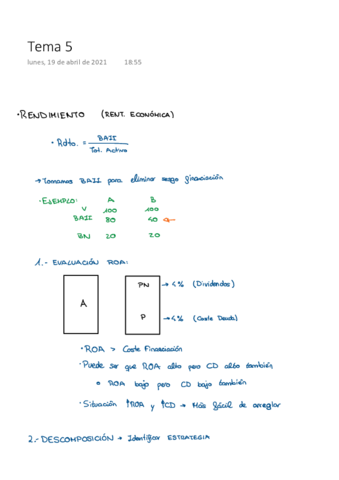 Tema 5
lunes, 19 de abril de 2021 18:55
• RENDIMIENTO (RENT. ECONÓMICA)
• Rdto. = BAII
Tot. Activo
→ Tomamos BAII para eliminar sesgo financiación
• EJEMPLO: A B
V 100 100
BAII 80 40 ←
BN 20 20
1.- EVALUACIÓN ROA:
A
PN → 4% (Dividendos)
P → 4% (Coste Deuda)
• ROA > Coste Financiación
• Puede ser que ROA alto pero CD alto también
o ROA bajo pero CD bajo también
• Situación ↑ROA y ↑CD → Más fácil de arreglar
2.- DESCOMPOSICIÓN → Identificar ESTRATEGIA